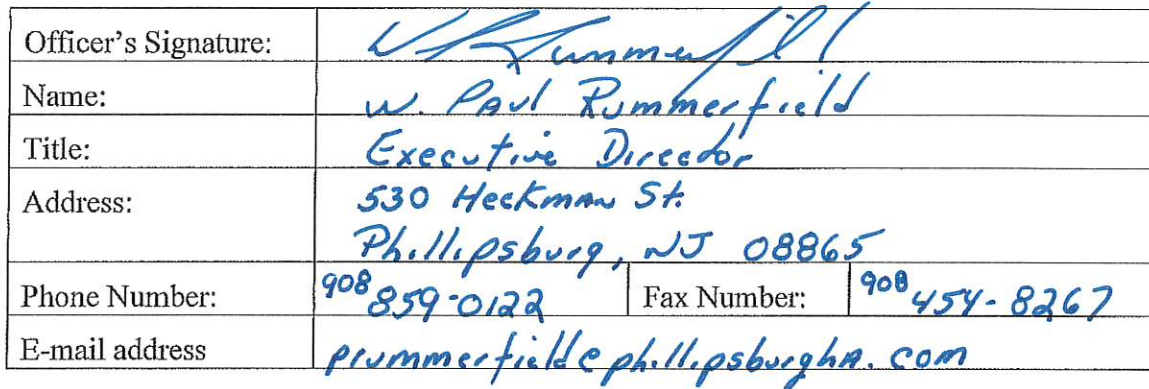 Officer's Signature: W P Rummerfield
Name: W. Paul Rummerfield
Title: Executive Director
Address: 530 Heckman St.
Phillipsburg, NJ 08865
Phone Number: 908 859-0122 Fax Number: 908 454-8267
E-mail address prummerfield@phillipsburgha.com